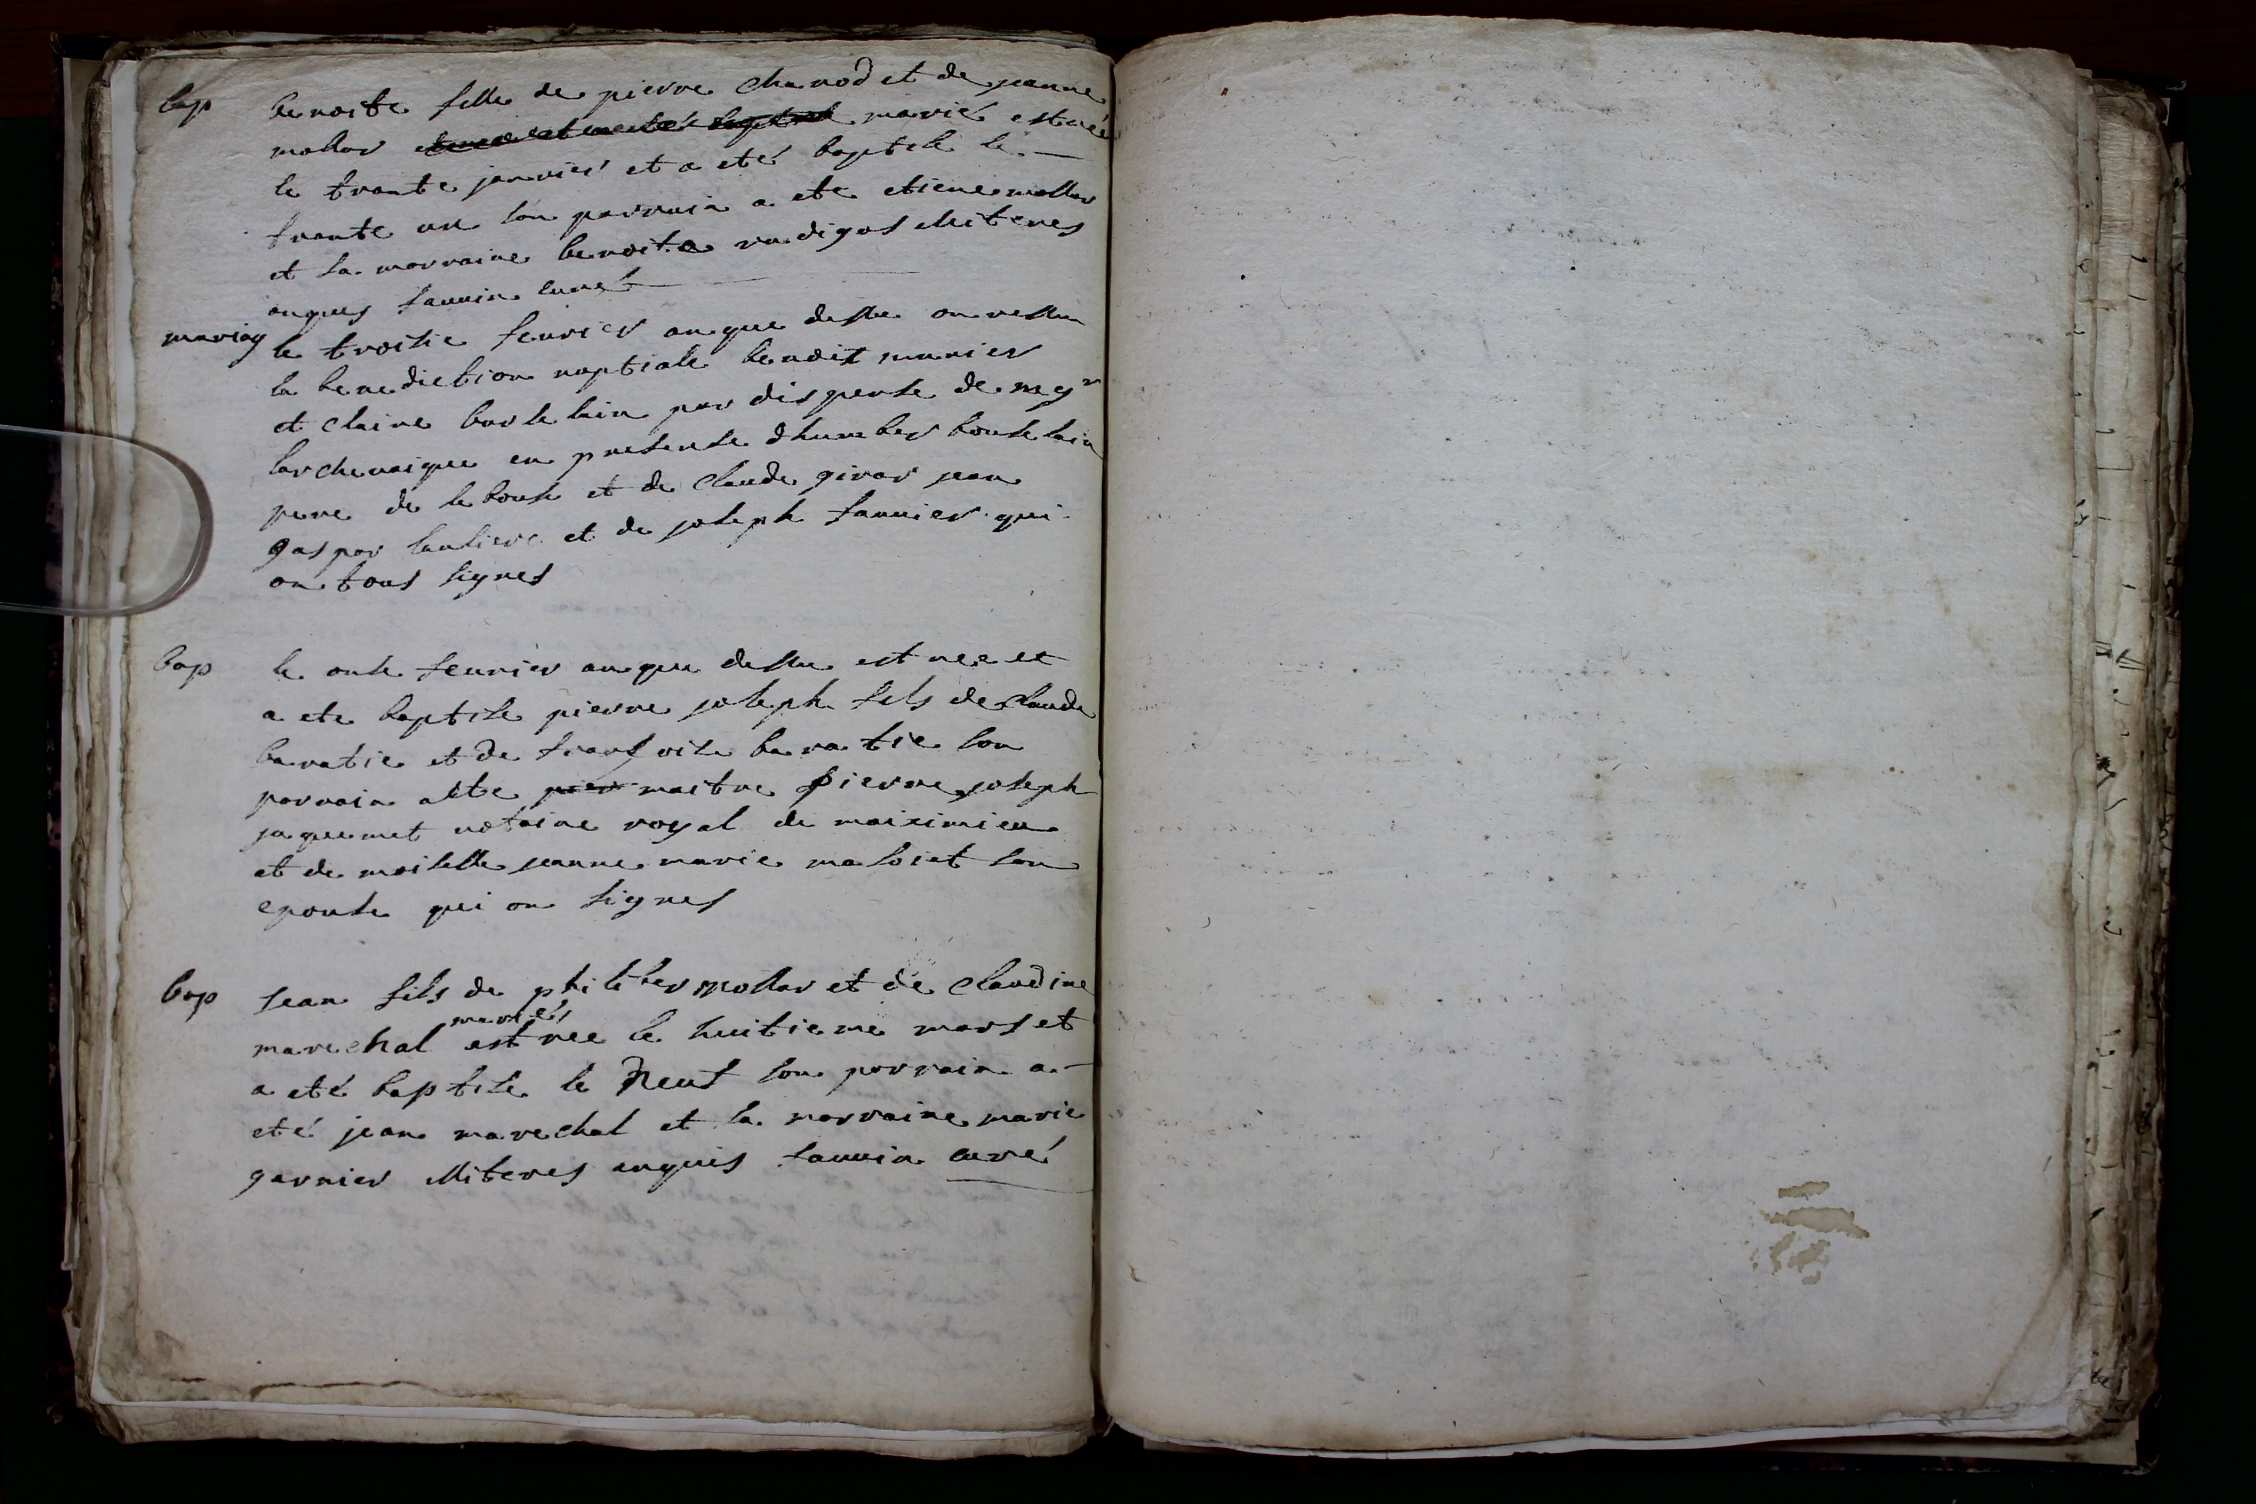 bap benoite fille de pierre chanod et de jeanne
mollar marié est née
le trante janvier et a eté baptisé le
trante un son parrain a ete etiene mollar
et la marraine benoite radigos illiteres
enquis sauvin curé
mariag le troisie fevrier an que dessu on ressu
la benediction nuptiale benoit munier
et claire bouselain par dispense de mgr
larchevaique en presense dhumber bouselain
pere de lepouse et de claude girar jean
gaspar lauliere et de joseph sannier qui
on tous signes
bap le onse fevrier an que dessu est nee et
a ete baptise pierre joseph fils de claude
baratie et de fransoise baratie son
parrain a ete maitre pierre joseph
jaquemet notaire royal de maiximieu
et demoiselle jeanne marie masoiet son
epouse qui on signes
bap jean fils de philiber mollar et de claudine
mariés
marechal est nee le huitieme mars et
a eté baptise le neuf son parrain a
eté jean marechal et la marraine marie
garnier illiteres enquis sauvin curé